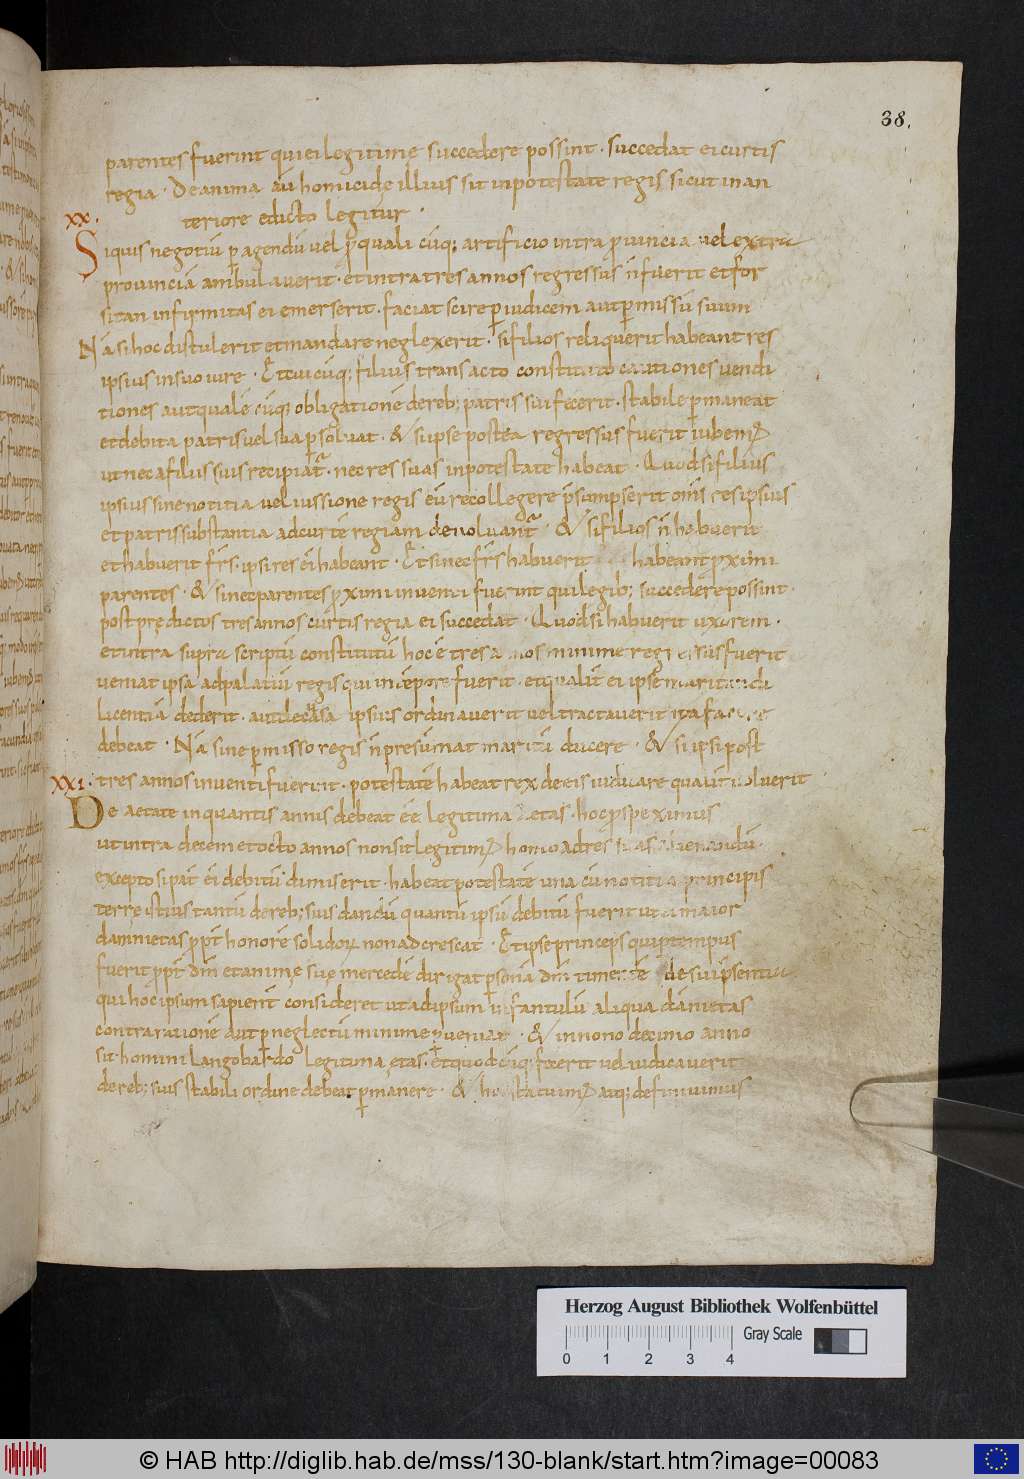 38.
parentes fuerint qui ei legitime succedere possint · succedat ei curtis
regia · De anima aū homicidę illius sit in potestate regis sicut in an
teriore edicto legitur ·
xx.
Siquis negotiū p agendū vel p quali cūq; artificio intra pvincia vel extra
provinciā ambulaverit · et intra tres annos regressus n̄ fuerit et for
sitan infirmitas ei emerserit · faciat scire p iudicem aut p missū suum
Nā si hoc distulerit et mandare neglexerit · si filios reliquerit habeant res
ipsius in suo iure · Et cuicūq; filius transacto constituto cautiones vendi
tiones aut quale cūq; obligatione de reb; patris sui fecerit · stabile pmaneat
et debita patris vel sua psolvat · & si ipse postea regressus fuerit iubem;
ut nec a filius suis recipiat̄ · nec res suas in potestate habeat · Quod si filius
ipsius sine notitia vel iussione regis eū recollegere p̄sumpserit om̄is res ipsius
et patris substantia ad curtē regiam devolvant̄ · & si filios n̄ habuerit
et habuerit fr̄s · ipsi res ei habeant · Et si nec fr̄s habuerit habeant pximi
parentes · & si nec parentes pximi inventi fuerint qui legib; succedere possint ·
post prędictos tres annos curtis regia ei succedat · Quod si habuerit uxorem ·
et intra supra scriptū constitutū hoc ē tres annos minime regressus fuerit
veniat ipsa ad palatiū regis qui in tēpore fuerit · et qualit̄ ei ipse maritandi
licentiā dederit · aut de casa ipsius ordinaverit vel tractaverit ita facere
debeat · Nā sine pmisso regis n̄ presūmat maritū ducere · & si ipsi post
xxi. tres annos inventi fuerint · potestatē habeat rex de eis iudicare qualit̄ voluerit
De aetate in quantis annis debeat eē legitima aetas · hoc pspeximus
ut intra decem et octo annos non sit legitim; homo ad res suas alienandū ·
excepto si pat̄ ei debitū dimiserit · habeat potestatē una cū notitia principis
terre istius tantū de reb; suis dandū quantū ipsū debitū fuerit ut ei maior
damnietas ppt̄ honorē solidoꝝ non adcrescat · Et ipse princeps qui p tempus
fuerit ppt̄ dm̄ et animę suę mercedē dirigat psonā dm̄ timentē de sui p̄sentia
qui hoc ipsum sapienter consideret ut ad ipsum infantulū aliqua dānietas
contra rationē aut p neglectū minime pveniat · & in nono decimo anno
sit homini Langobardo legitima ętas · et quod cūq; fecerit vel iudicaverit
de reb; suis stabili ordine debeat pmanere · & hoc statuim; atq; definivimus
Herzog August Bibliothek Wolfenbüttel
Gray Scale
0 1 2 3 4
© HAB http://diglib.hab.de/mss/130-blank/start.htm?image=00083